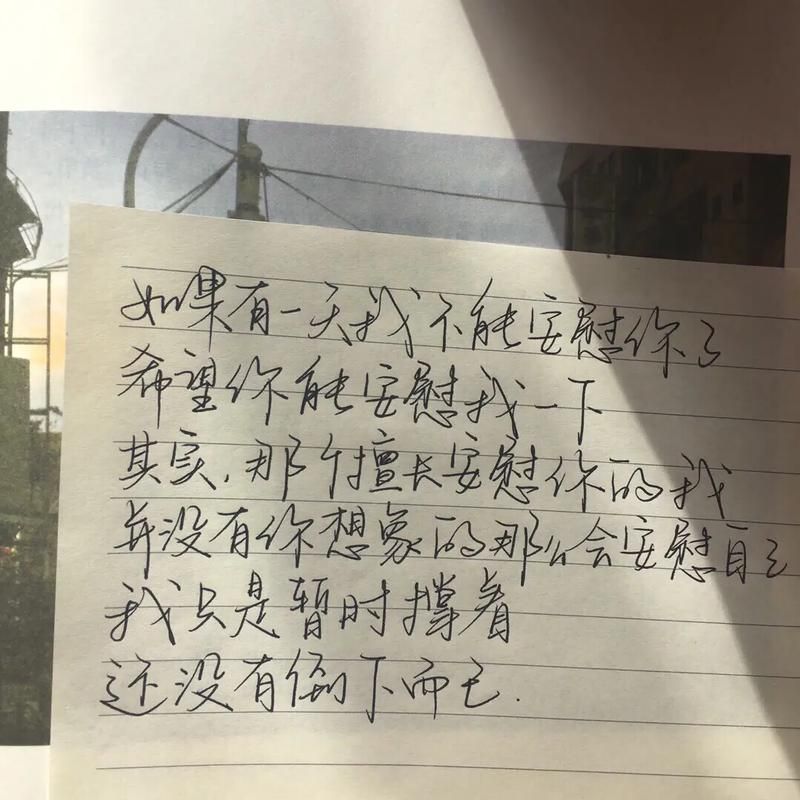 如果有一天我不能安慰你了
希望你能安慰我一下
其实,那个擅长安慰你的我
并没有你想象的那么会安慰自己
我只是暂时撑着
还没有倒下而已.